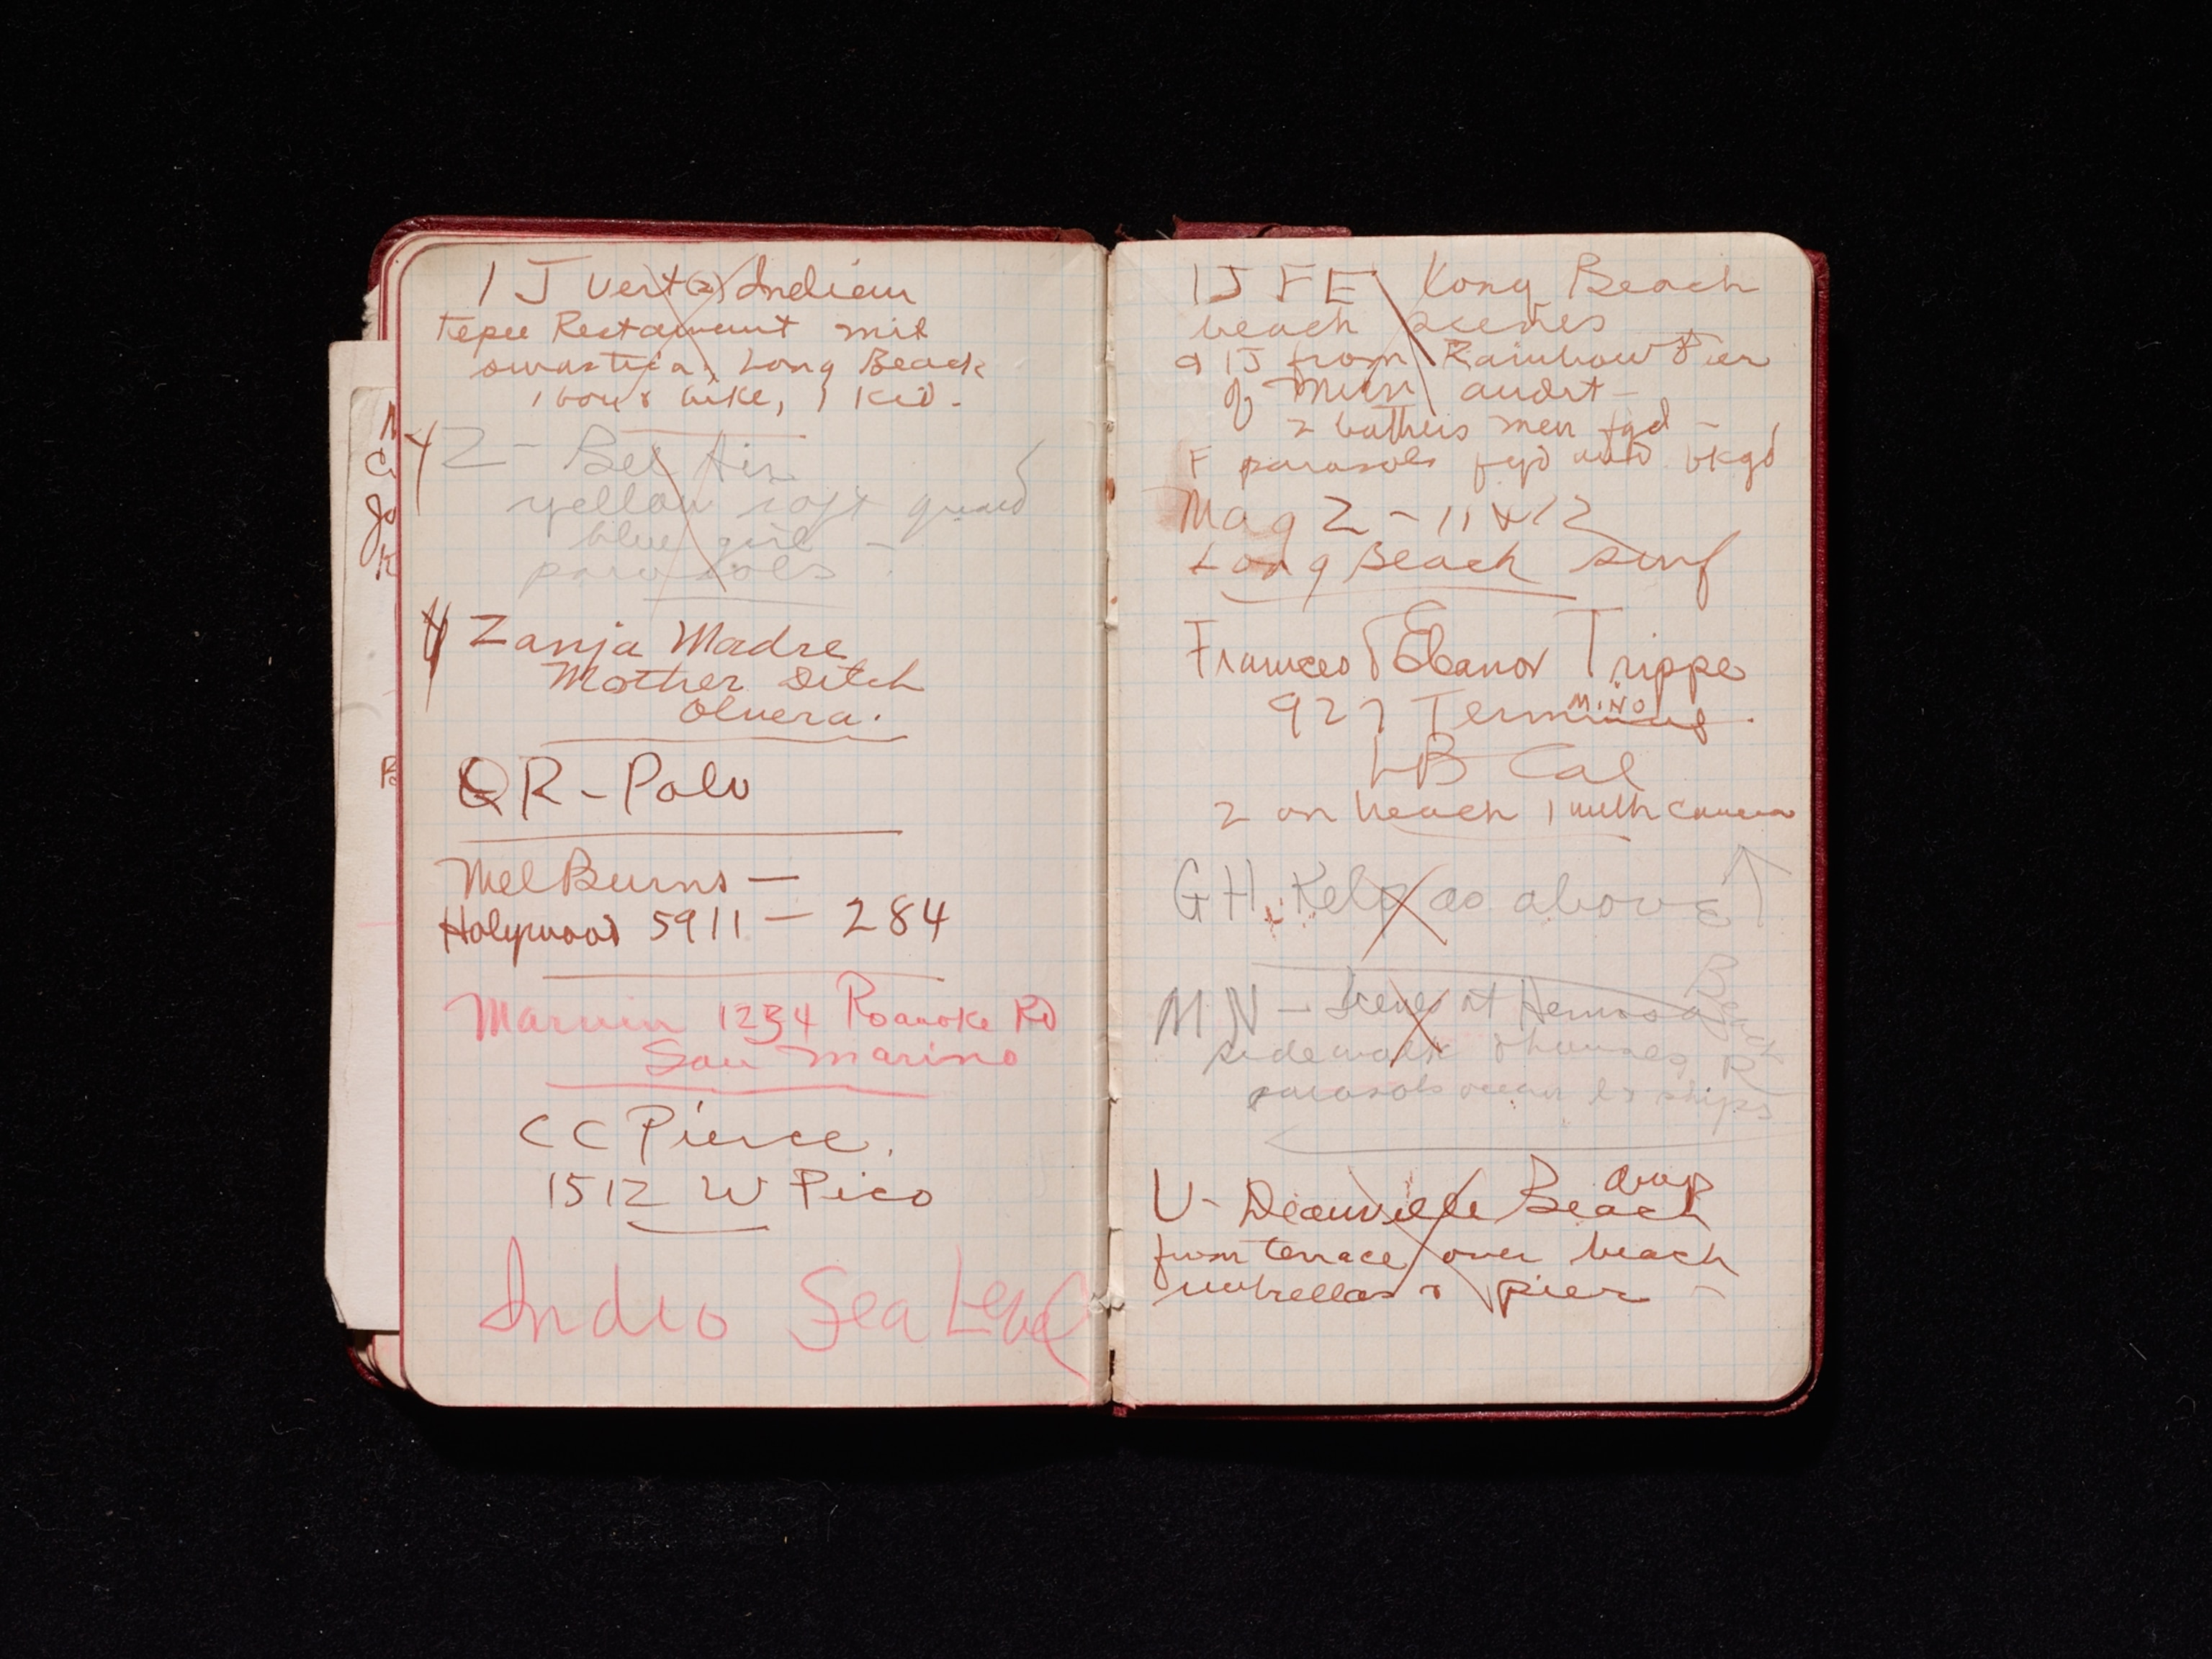 1 J Vert (2) Indian
tepee Restaurant mit
swastica, Long Beach
1 boy & bike, 1 kid.
Y Z - Bel Air
yellow guard
blue girl -
parasols -
Zanja Madre
Mother Ditch
Olvera.
QR - Polo
Mel Burns —
Holywood 5911 — 284
Marvin 1234 Roanoke Rd
San Marino
CC Pierce,
1512 W Pico
Indio Sea Level
1J FE Long Beach
beach scenes
9 1J from Rainbow Pier
of Mun audit -
2 bathers men fgd -
F parasols fgd and bkgd
Mag 2 - 11 & 12
Long Beach surf
Frances & Eleanor Trippe
927 Termino
LB Cal
2 on beach 1 with camera
GH. Kelp as above
MN - at Hermosa Beach
sidewalk & houses R
parasols ocean & ships
U - Deauville Beach
from terrace over beach
umbrellas & pier -